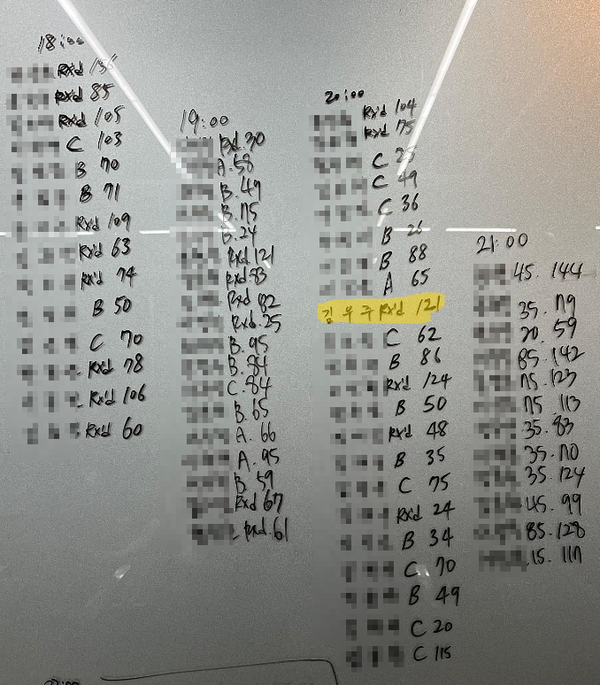 18:00
Rx'd 131
Rx'd 85
Rx'd 105
C 103
B 70
B 71
Rx'd 109
Rx'd 63
Rx'd 74
B 50
C 70
Rx'd 78
Rx'd 106
Rx'd 60
19:00
Rxd. 30
A. 58
B. 47
B. 75
B. 24
Rxd 121
Rxd. 83
Rxd 82
Rxd. 25
B. 95
B. 84
C. 84
B. 65
A. 66
A. 95
B. 59
Rxd 67
Rxd. 61
20:00
Rx'd 104
Rx'd 75
C 25
C 49
C 36
B 26
B 88
A 65
김우주 Rx'd 121
C 62
B 86
Rx'd 124
B 50
Rx'd 48
B 35
C 75
Rxd 24
B 34
C 70
B 49
C 20
C 115
21:00
45. 144
35. 79
20. 59
85. 142
75. 123
75. 113
35. 83
35. 70
35. 124
45. 99
85. 128
15. 117